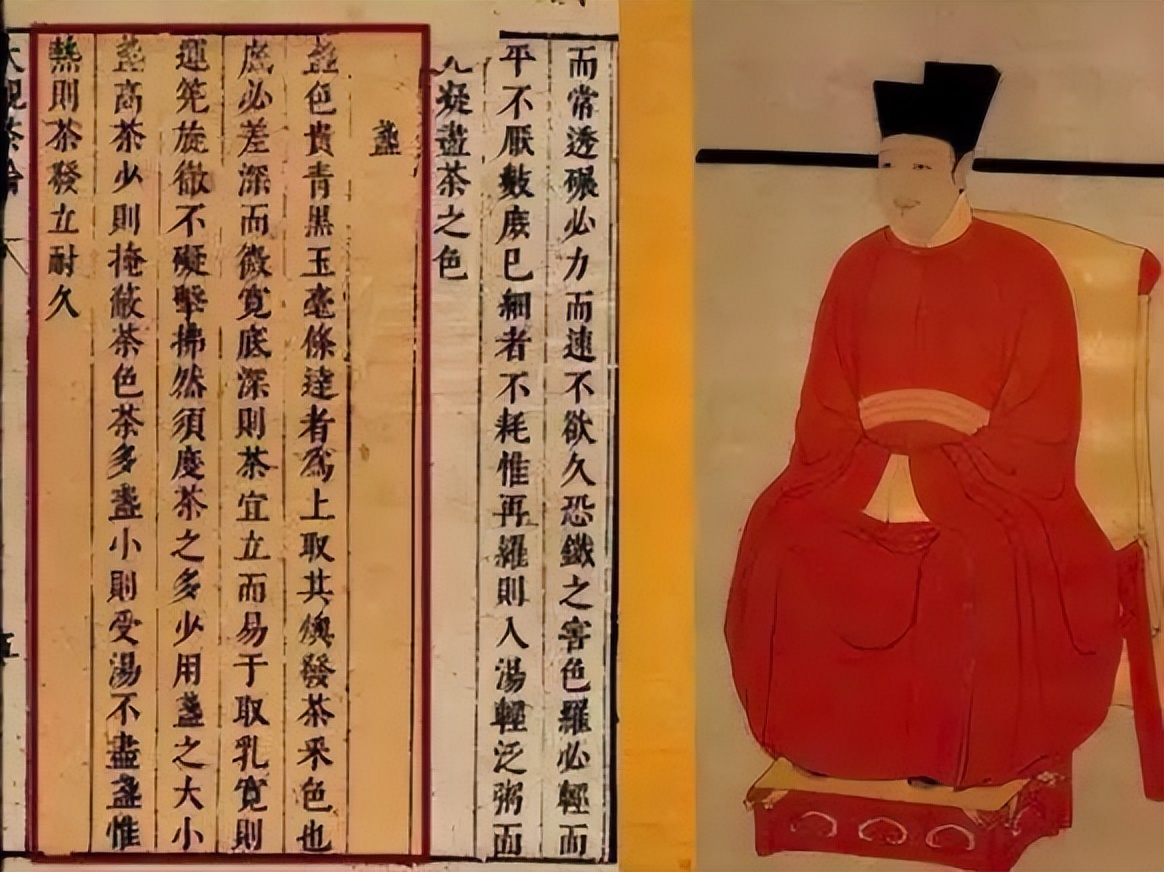 而常透碾必力而速不欲久恐鐵之害色羅必輕而
平不厭數庻已細者不耗惟再羅則入湯輕泛粥面
凝盡茶之色
盞
盞色貴青黑玉毫條達者爲上取其燠發茶采色也
底必差深而微寛底深則茶宜立而易于取乳寛則
運筅旋徹不礙擊拂然須度茶之多少用盞之大小
盞高茶少則掩蔽茶色茶多盞小則受湯不盡盞惟
熱則茶發立耐久